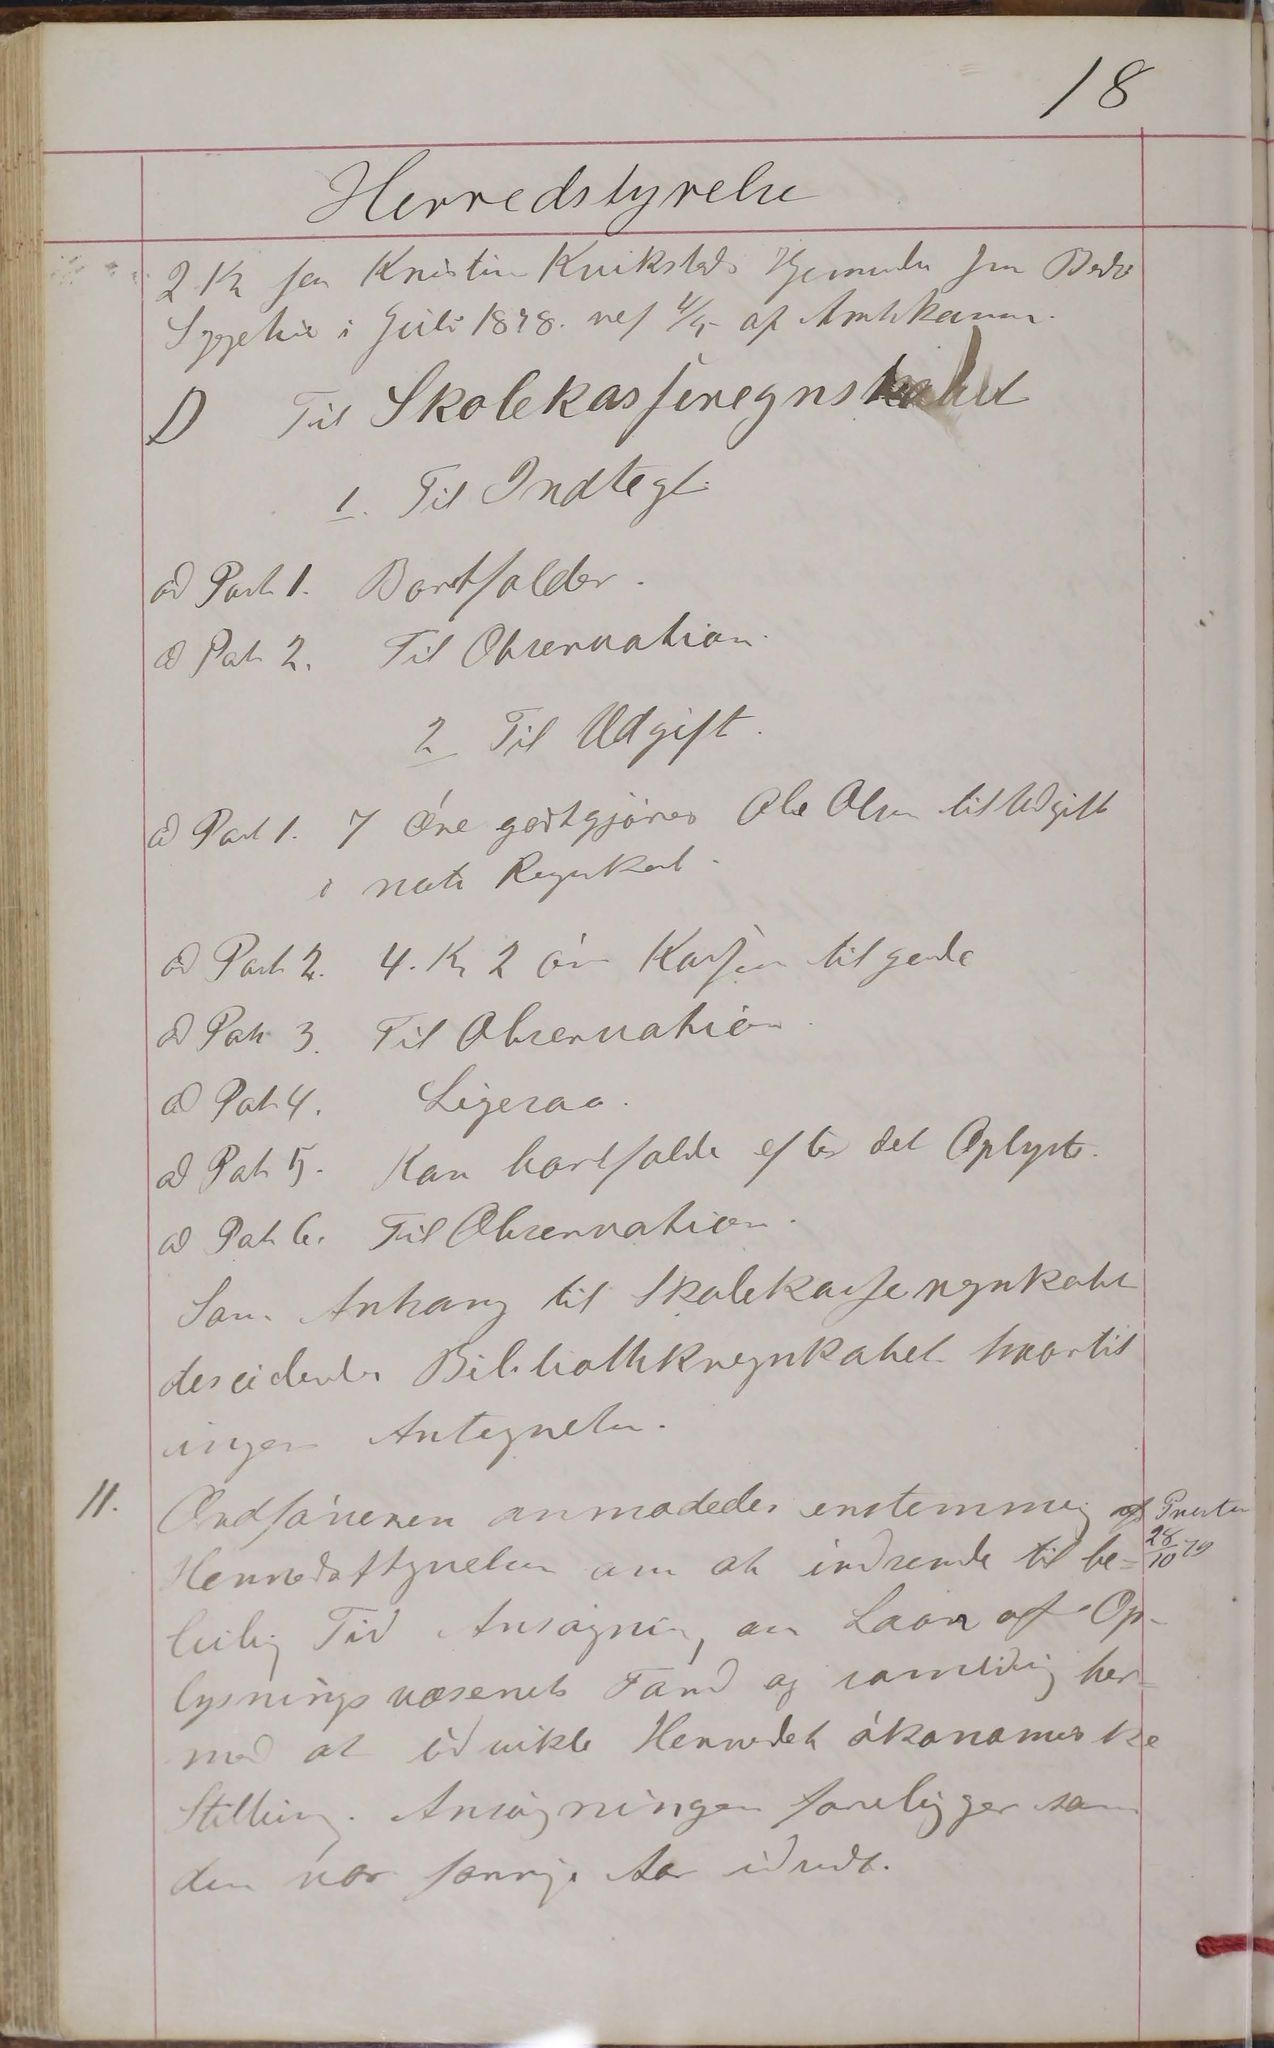 18
Herredstyrelse
2 Kr for Kristine Kvikstads Hjemreise fra Bodø
Sygehus i Juli 1878. ref af Amtskassen.
D Til Skolekasseregnskabet
1. Til Indtegt.
ad Post 1. Bortfalder.
ad Post 2. Til Observation.
2 Til Udgift.
ad Post 1. 7 Øre godtgjøres Ole Olsen til Udgift
i neste Regnskab.
ad Post 2. 4. Kr 2 øre Kassen tilgode
ad Post 3. Til Observation
ad Post 4. Ligesaa.
ad Post 5. Kan bortfalde efter det Oplyste.
ad Post 6. Til Observation.
Som Anhang til Skolekasseregnskabet
Bibliothekregnskabet hvortil
ingen Antegnelser.
11. Ordføreren anmodedes enstemmig af
Herredsstyrelsen om at indsende til be-
leilig Tid Ansøgning om Laan af Op-
lysningsvæsenets Fond og samtidig her-
med at udvikle Herredets økonomiske
Stilling. Ansøgningen foreligger som
den var forrige Aar
28/10 79